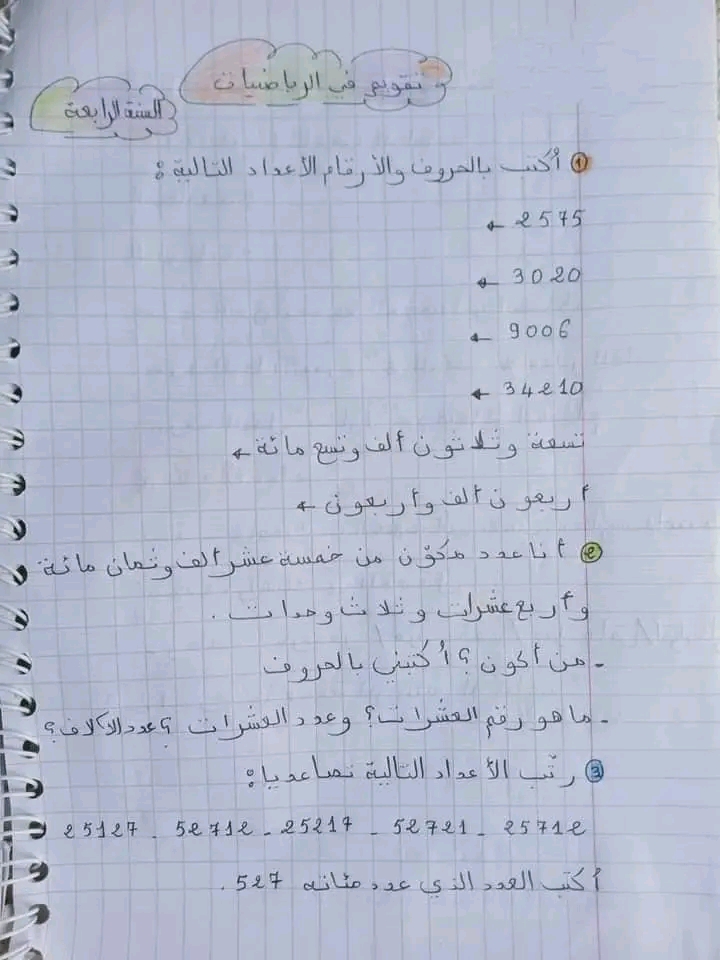 تقويم في الرياضيات
السنة الرابعة
① أُكتب بالحروف والأرقام الأعداد التالية :
2575 ←
3020 ←
9006 ←
34210 ←
تسعة وثلاثون ألف وتسع مائة ←
أربعون ألف وأربعون ←
② أنا عدد مكوّن من خمسة عشر ألف وثمان مائة
وأربع عشرات وثلاث وحدات .
- من أكون ؟ أُكتبني بالحروف
- ما هو رقم العشرات ؟ وعدد العشرات ؟ عدد الآلاف ؟
③ رتّب الأعداد التالية تصاعديا :
25712 - 52721 - 25217 - 52712 - 25127
أكتب العدد الذي عدد مئاته 527 .